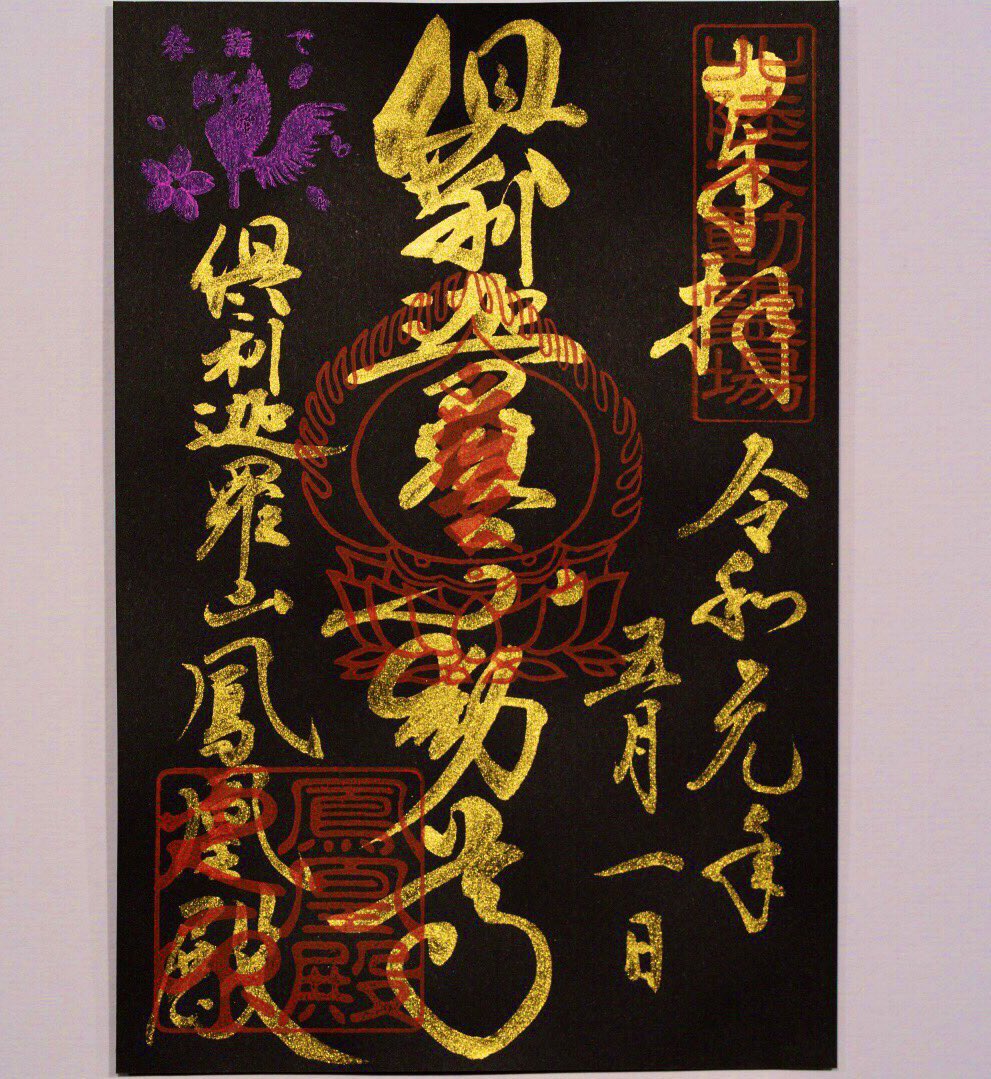 北陸不動霊場
奉拝
令和元年
五月一日
倶利迦羅不動尊
春詣で
倶利迦羅山鳳凰殿
鳳凰殿
之印